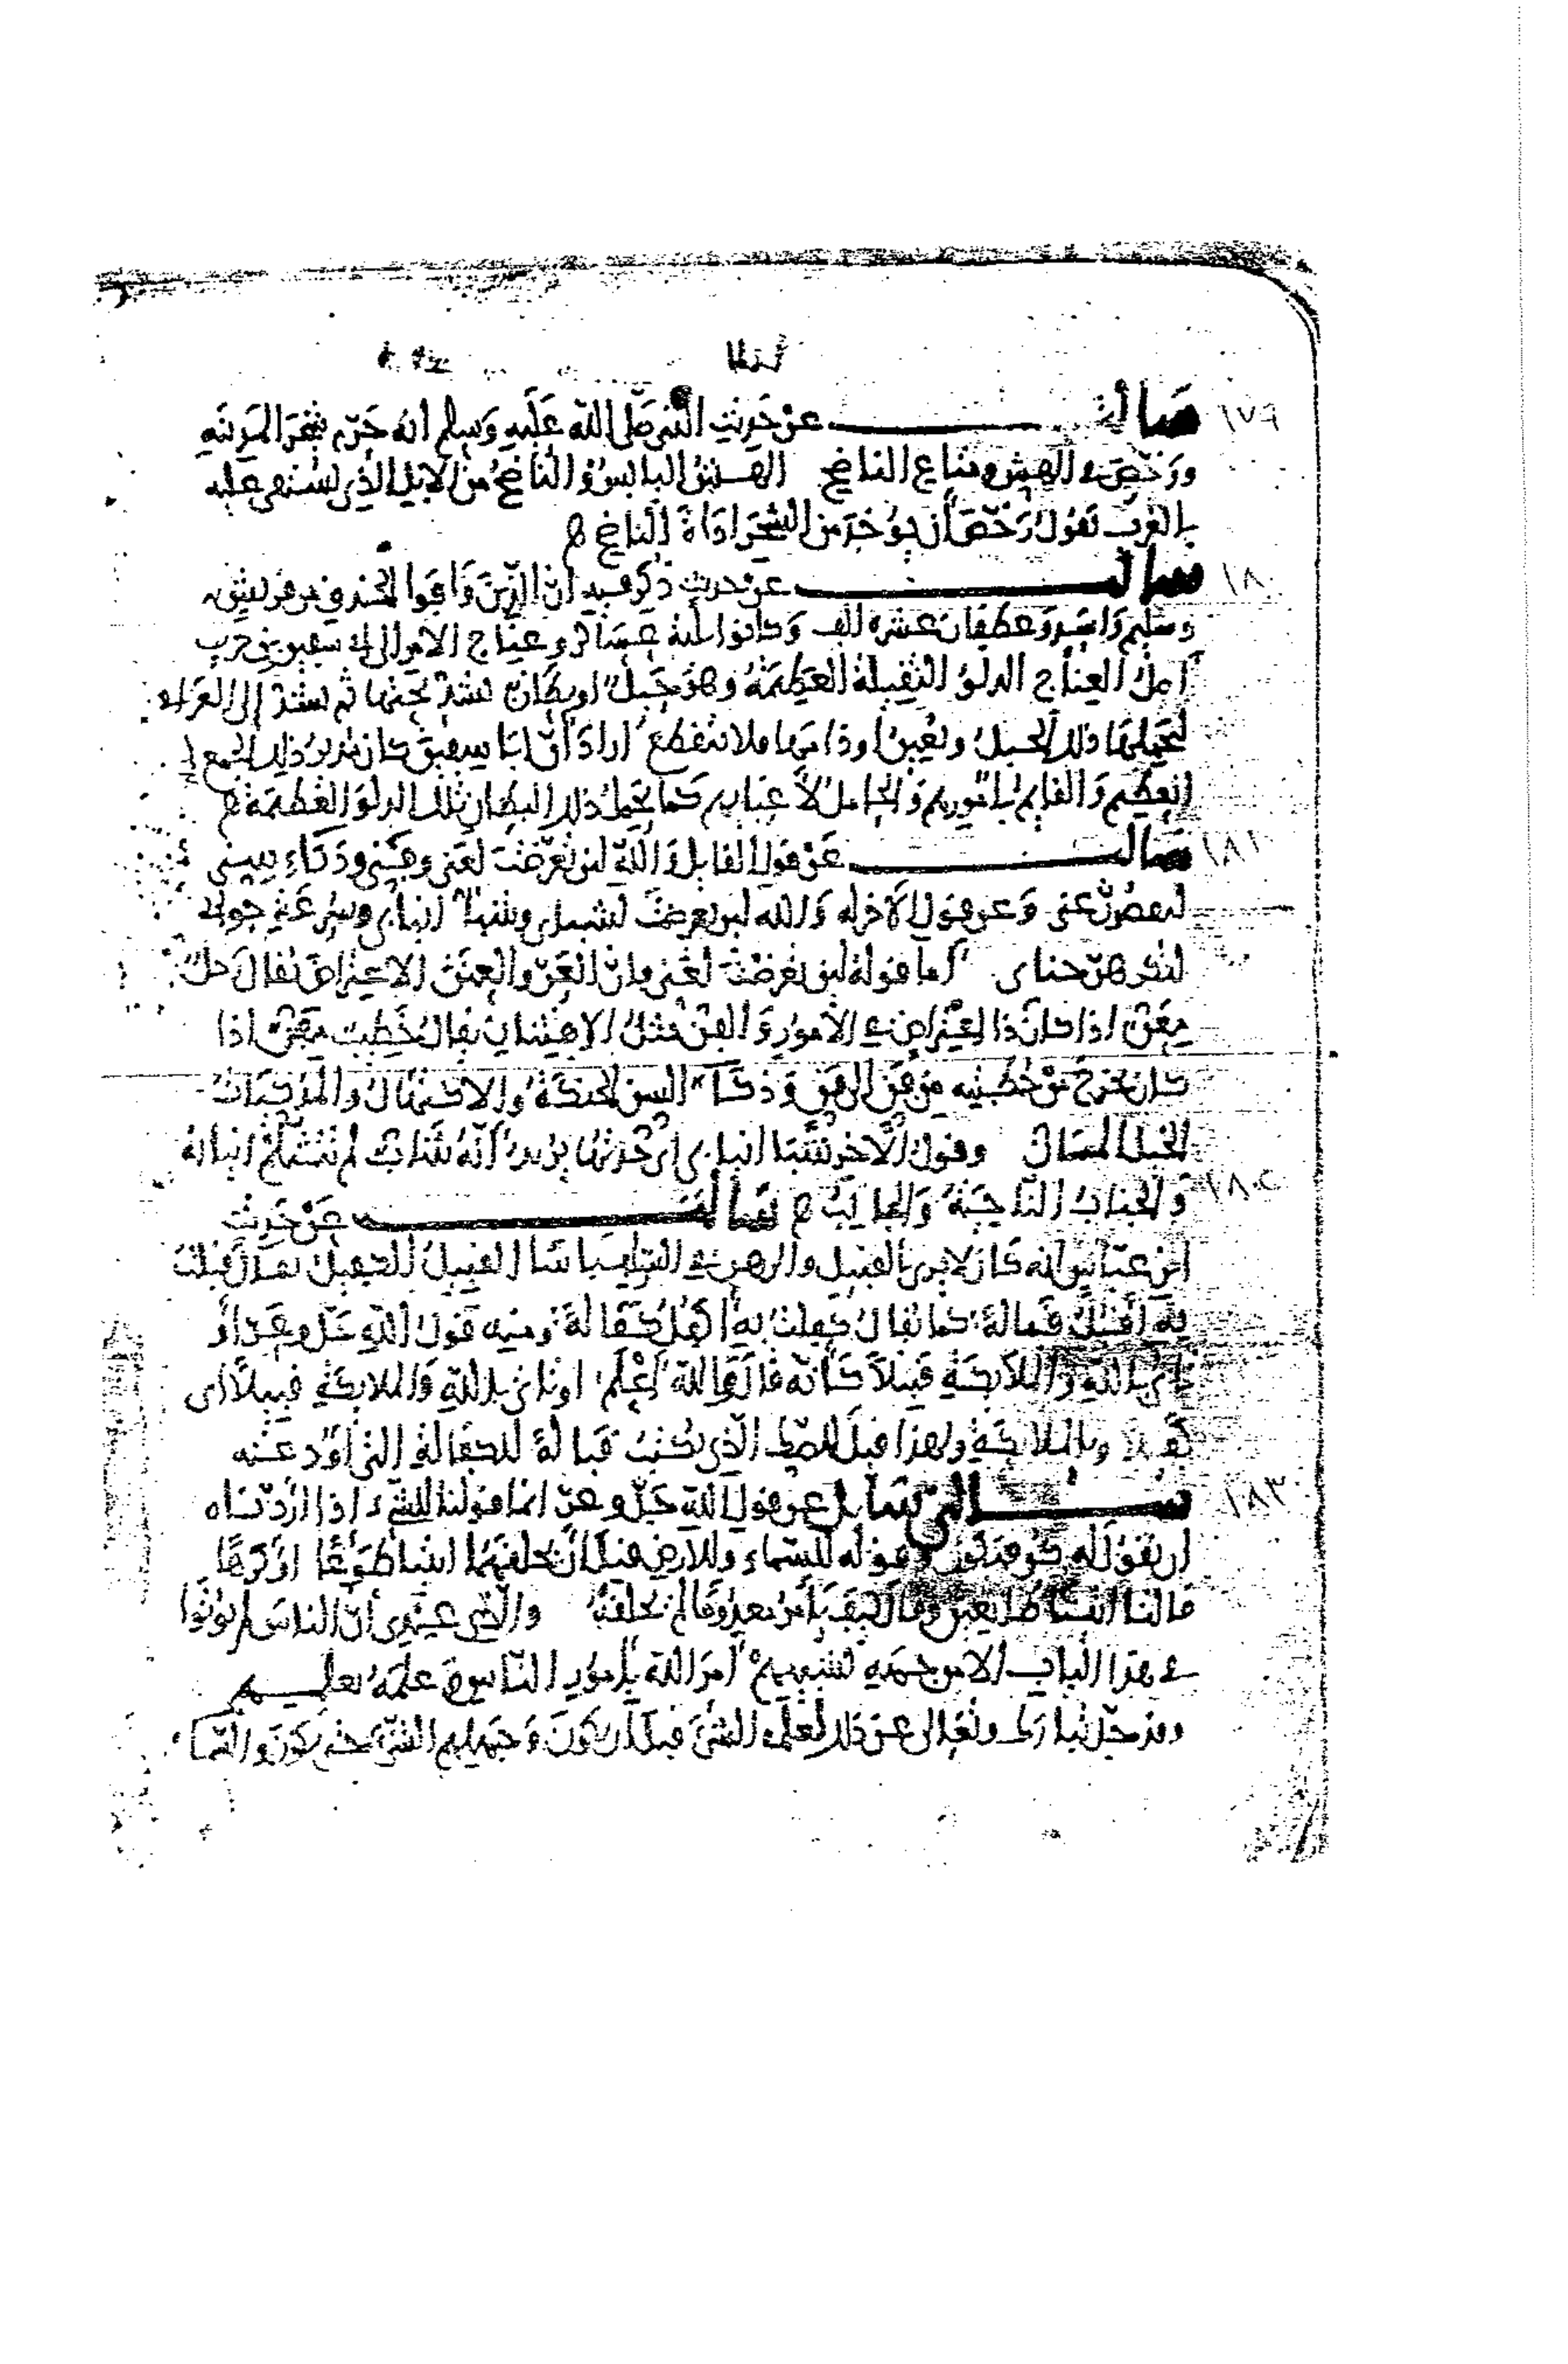 ١٧٩
سألت عن حديث النبي صلى الله عليه وسلم أنه حرم شجر المدينه
ورخص في الهش ومتاع الناضح الهش اليابس والناضح من الابل الذي يستقى عليه
بالغرب تقول رخص أن يوخذ من الشجر اداة الناضح
١٨٠
سألت عن حديث ذكر فيه ان الذين وافوا الخندق من قريش
وسليم واسد وغطفان عشره الف وكانوا ثلثة عساكر وعناج الامر الى ابي سفين بن حرب
اصل العناج الدلو الثقيلة العظيمة وهو حبل او بطان يشد تحتها ثم يشد إلى العراقي
ليحملها ذلك الحبل ويعين اوذامها فلا تنقطع اراد أن ابا سفين كان مدبر ذلك الجمع
العظيم والقايم بامورهم والحامل لأعبايهم كما يحمل ذلك البطان تلك الدلو العظيمة
١٨١
سألت عن قول القايل والله لين تعرضت لعني وفني وذكاء سني
لتنكصن عني وعن قول الآخر له والله لين تعرضت لشبابي وشبا انيابي وسرعة جوابي
لتكرهن جنابي اما قوله لين تعرضت لعني فان العن والعنن الاعتراض يقال رجل
معن اذا كان ذا اعتراض في الأمور والفن مثل الافتنان يقال خطيب مفن اذا
كان يخرج من خطبته من فن الى فن وذكاء السن الحنكة والاكتهال والمذكيات
الخيل المسان وقول الآخر شبا انيابي اي حدتها يريد أنه شاب لم تتثلم انيابه
والجناب الناحية والجانب سألت عن حديث
١٨٢
ابن عباس انه كان لا يرى بالقبيل والرهن في السلف باسا القبيل الكفيل يقال قبلت
به أقبل قبالة كما يقال كفلت به أكفل كفالة ومنه قول الله عز وجل أو
تأتي بالله والملائكة قبيلا كأنه قال والله أعلم او تاتي بالله والملائكة قبيلا أي
كفلا وبالملائكة ولهذا قيل للصك الذي يكتب قبالة للكفالة التي اودعته
١٨٣
سألني سايل عن قول الله جل وعز انما قولنا للشيء اذا أردناه
ان نقول له كن فيكون وقوله للسماء وللارض قبل أن يخلقهما ايتيا طوعا او كرها
قالتا اتينا طايعين وقال كيف يأمر معدوما لم يخلقه والذي عندي أن الناس لم يوتوا
في هذا الباب الا من جهه تشبيههم امر الله بامور الناس وعلمه بعلمهم
وقد جل تبارك وتعالى عن ذلك لعلمه الشيء قبل أن يكون وجهلهم الشيء حتى يكون